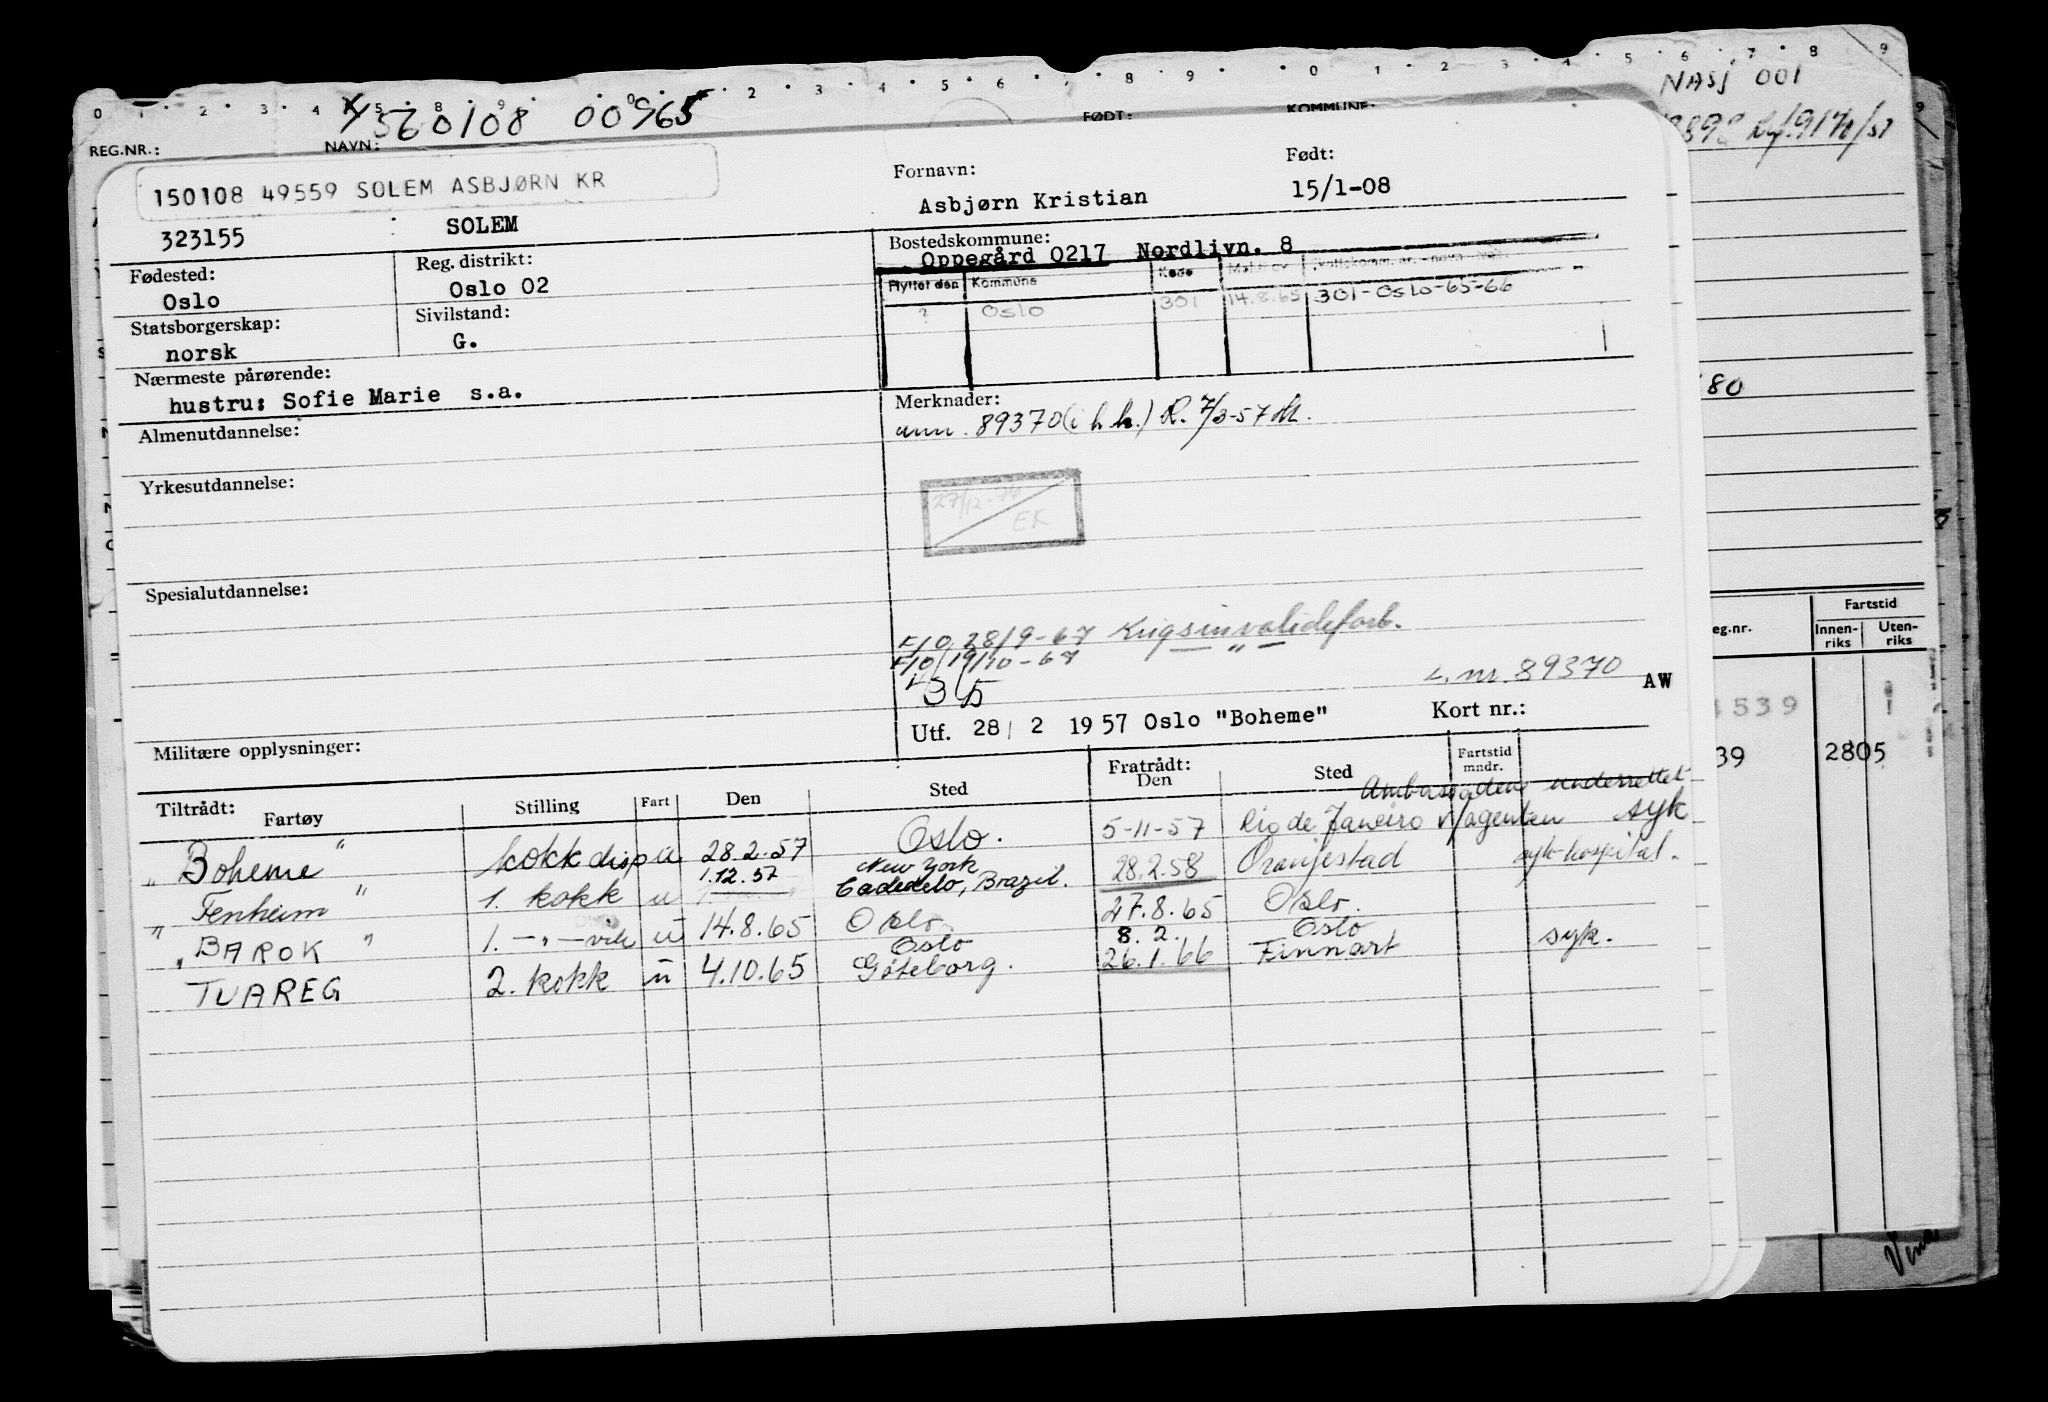 0 1 2 3 4 5 8 9 2 3 4 5 6 7 8 9 0 1 2 3 4 5 6 7 8 9
NASJ 001
560108 00965
REG.NR.: NAVN: FØDT: KOMMUNE:
150108 49559 SOLEM ASBJØRN KR
323155 SOLEM
Fornavn: Født:
Asbjørn Kristian 15/1-08
Fødested: Reg. distrikt:
Oslo Oslo 02
Statsborgerskap: Sivilstand:
norsk G.
Nærmeste pårørende:
hustru: Sofie Marie s.a.
Almenutdannelse:
Yrkesutdannelse:
Spesialutdannelse:
Militære opplysninger:
Bostedskommune:
Oppegård 0217 Nordlivn. 8
Flyttet den Kommune Kode
? Oslo 301 14.8.65 301-Oslo-65-66
Merknader:
ann. 89370 (i h.h.) R. 7/3-57
27/12-76
EK
F/O 28/9-67 Krigsinvalideforb.
F/O 19/10-67 — " —
L. nr. 89370 AW
Utf. 28/2 1957 Oslo "Boheme" Kort nr.:
Tiltrådt: Fratrådt:
Fartøy Stilling Fart Den Sted Den Sted Fartstid mndr.
Ambassaden underrettet
"Boheme" kokk disp u 28.2.57 Oslo. 5-11-57 Rio de Janeiro v/agenten syk
New York
"Fenheim" 1. kokk u 1.12.57 Cadedelo, Brazil. 28.2.58 Oranjestad syk-hospital.
"BAROK" 1. — " — vik u 14.8.65 Oslo. 27.8.65 Oslo.
Oslo 8. 2. Oslo
"TUAREG 2. kokk u 4.10.65 Göteborg. 26.1.66 Finnart syk.
80
Fartstid
eg.nr. Innen-riks Uten-riks
4539
39 2805